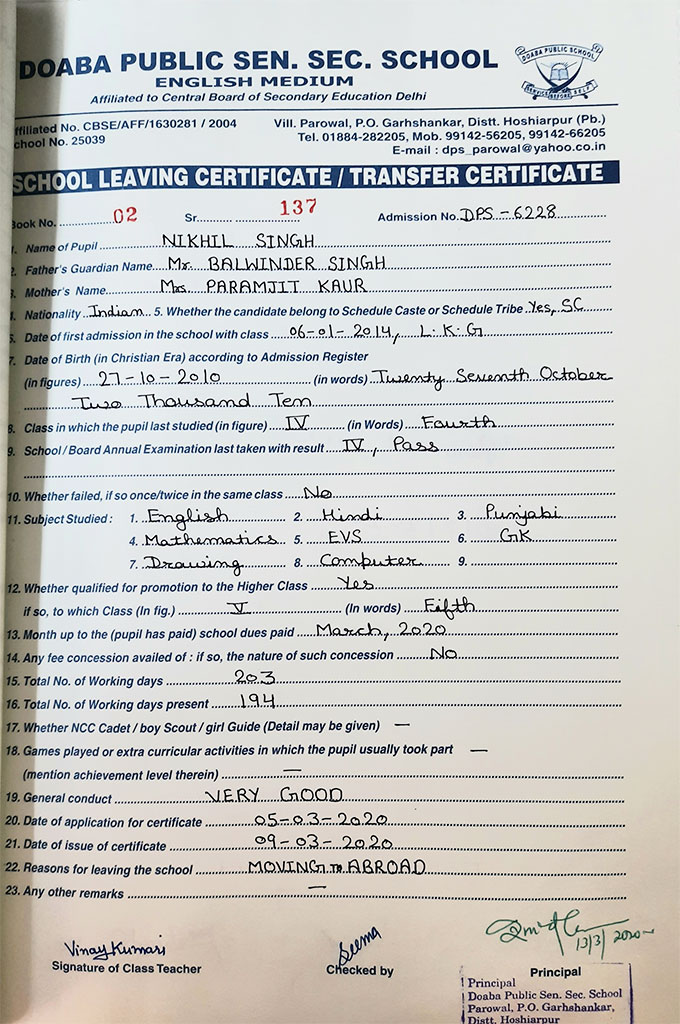 DOABA PUBLIC SEN. SEC. SCHOOL
DOABA PUBLIC SCHOOL
SERVICE BEFORE SELF
ENGLISH MEDIUM
Affiliated to Central Board of Secondary Education Delhi
ffiliated No. CBSE/AFF/1630281 / 2004 Vill. Parowal, P.O. Garhshankar, Distt. Hoshiarpur (Pb.)
chool No. 25039 Tel. 01884-282205, Mob. 99142-56205, 99142-66205
E-mail : dps_parowal@yahoo.co.in
SCHOOL LEAVING CERTIFICATE / TRANSFER CERTIFICATE
Book No. 02 Sr. 137 Admission No. DPS - 6228
1. Name of Pupil NIKHIL SINGH
2. Father's Guardian Name Mr. BALWINDER SINGH
3. Mother's Name Mrs. PARAMJIT KAUR
4. Nationality Indian 5. Whether the candidate belong to Schedule Caste or Schedule Tribe Yes, SC
6. Date of first admission in the school with class 06-01-2014, L.K.G
7. Date of Birth (in Christian Era) according to Admission Register
(in figures) 27-10-2010 (in words) Twenty Seventh October
Two Thousand Ten
8. Class in which the pupil last studied (in figure) IV (in Words) Fourth
9. School / Board Annual Examination last taken with result IV, Pass
10. Whether failed, if so once/twice in the same class No
11. Subject Studied : 1. English 2. Hindi 3. Punjabi
4. Mathematics 5. EVS 6. GK
7. Drawing 8. Computer 9.
12. Whether qualified for promotion to the Higher Class Yes
if so, to which Class (In fig.) V (In words) Fifth
13. Month up to the (pupil has paid) school dues paid March, 2020
14. Any fee concession availed of : if so, the nature of such concession No
15. Total No. of Working days 203
16. Total No. of Working days present 194
17. Whether NCC Cadet / boy Scout / girl Guide (Detail may be given) —
18. Games played or extra curricular activities in which the pupil usually took part —
(mention achievement level therein) —
19. General conduct VERY GOOD
20. Date of application for certificate 05-03-2020
21. Date of issue of certificate 09-03-2020
22. Reasons for leaving the school MOVING TO ABROAD
23. Any other remarks —
Vinay Kumari Seema 13/3/2020
Signature of Class Teacher Checked by Principal
Principal
Doaba Public Sen. Sec. School
Parowal, P.O. Garhshankar,
Distt. Hoshiarpur